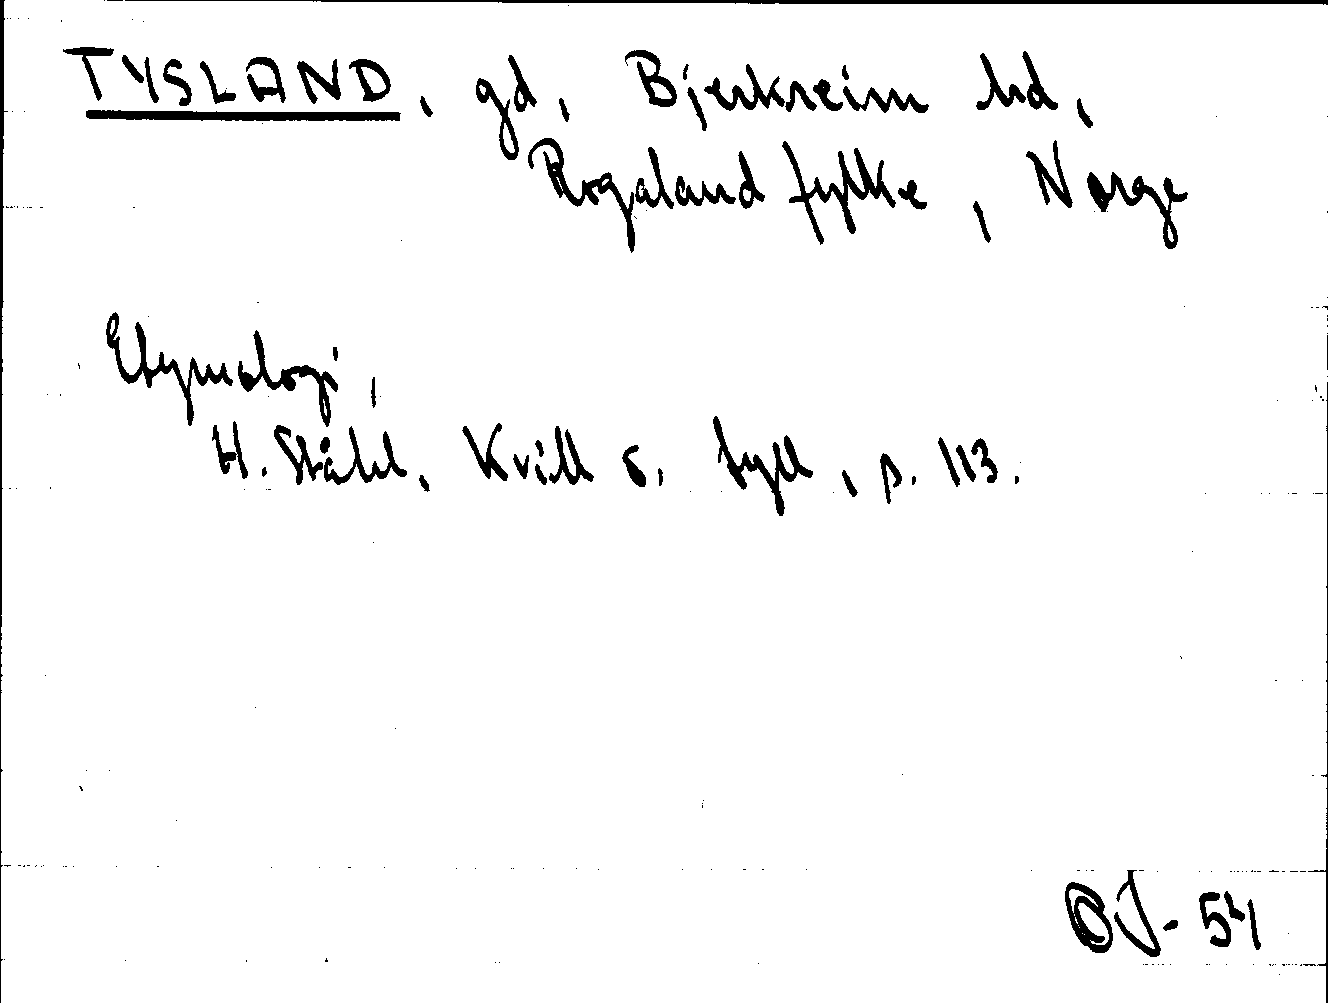 TYSLAND, gd, Bjerkreim hd,
Rogaland fylke, Norge
Etymologi,
H. Ståhl, Kvill o. tyll, p. 113.
OJ-54